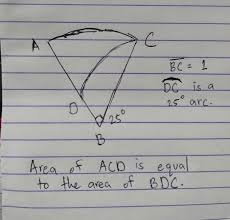 A
C
BC = 1
DC is a
25° arc.
D
25°
B
Area of ACD is equal
to the area of BDC.